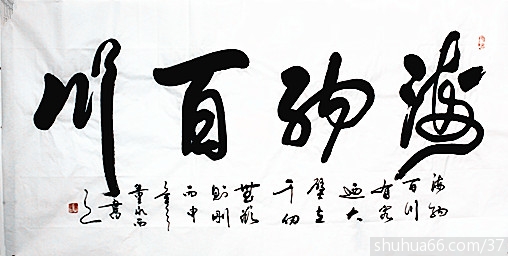 海纳百川
海纳
百川
有容
迺大
壁立
千仞
無欲
则刚
丙申
shuhua66.com/37